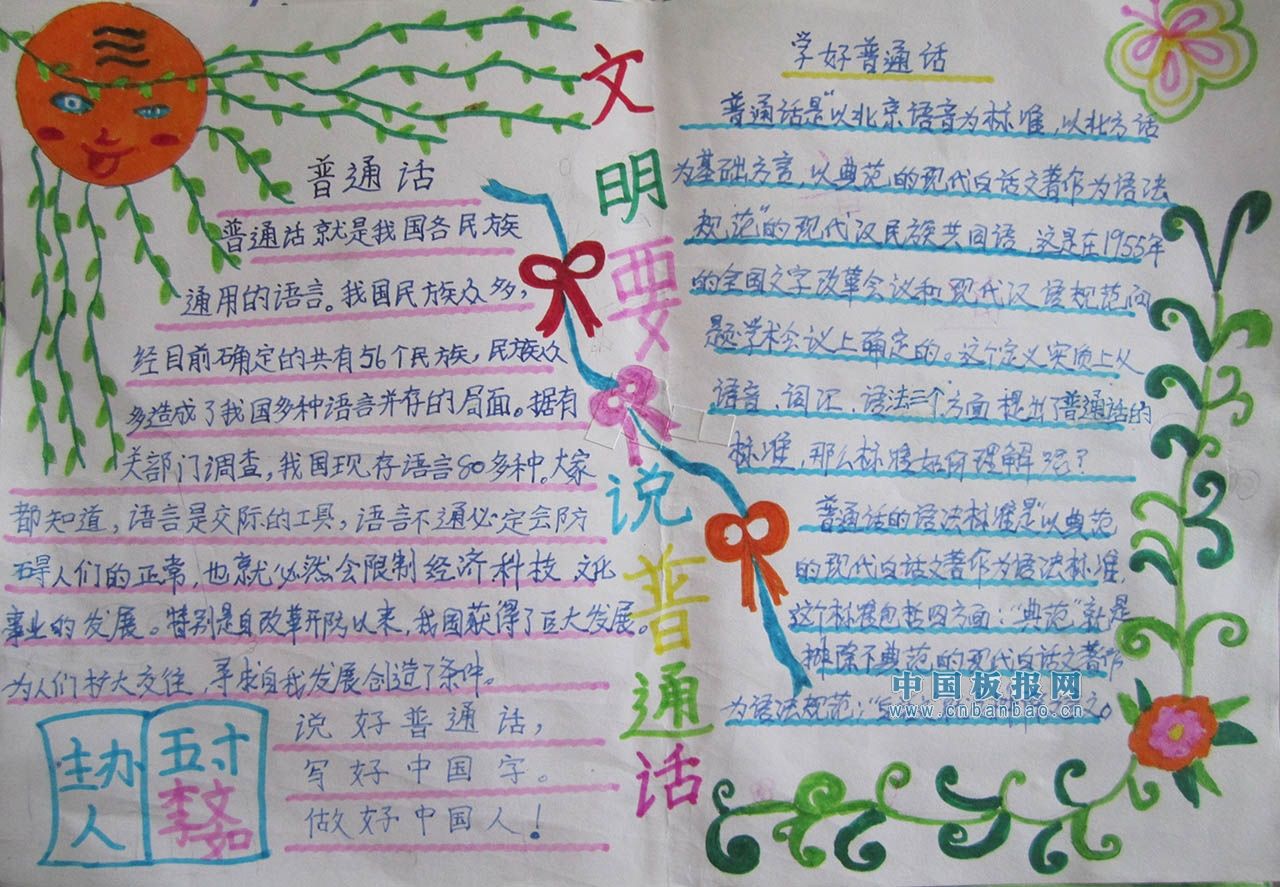 文明要说普通话
普通话
普通话就是我国各民族
通用的语言。我国民族众多，
经目前确定的共有56个民族，民族众
多造成了我国多种语言并存的局面。据有
关部门调查，我国现存语言80多种。大家
都知道，语言是交际的工具，语言不通必定会防
碍人们的正常，也就必然会限制经济科技文化
事业的发展。特别是自改革开防以来，我国获得了巨大发展。
为人们扩大交往，寻求自我发展创造了条件。
说好普通话，
写好中国字。
做好中国人！
主办
人
五寸
李文
如
学好普通话
普通话是“以北京语音为标准，以北方话
为基础方言，以典范的现代白话文著作为语法
规范”的现代汉民族共同语，这是在1955年
的全国文字改革会议和现代汉语规范问
题学术会议上确定的。这个定义实质上从
语音、词汇、语法三个方面提出了普通话的
标准，那么标准如何理解呢？
普通话的语法标准是“以典范
的现代白话文著作为语法标准，
这个标准包括四方面：“典范”就是
排除不典范的现代白话文著作
为语法规范；
中国板报网
www.cnbanbao.cn